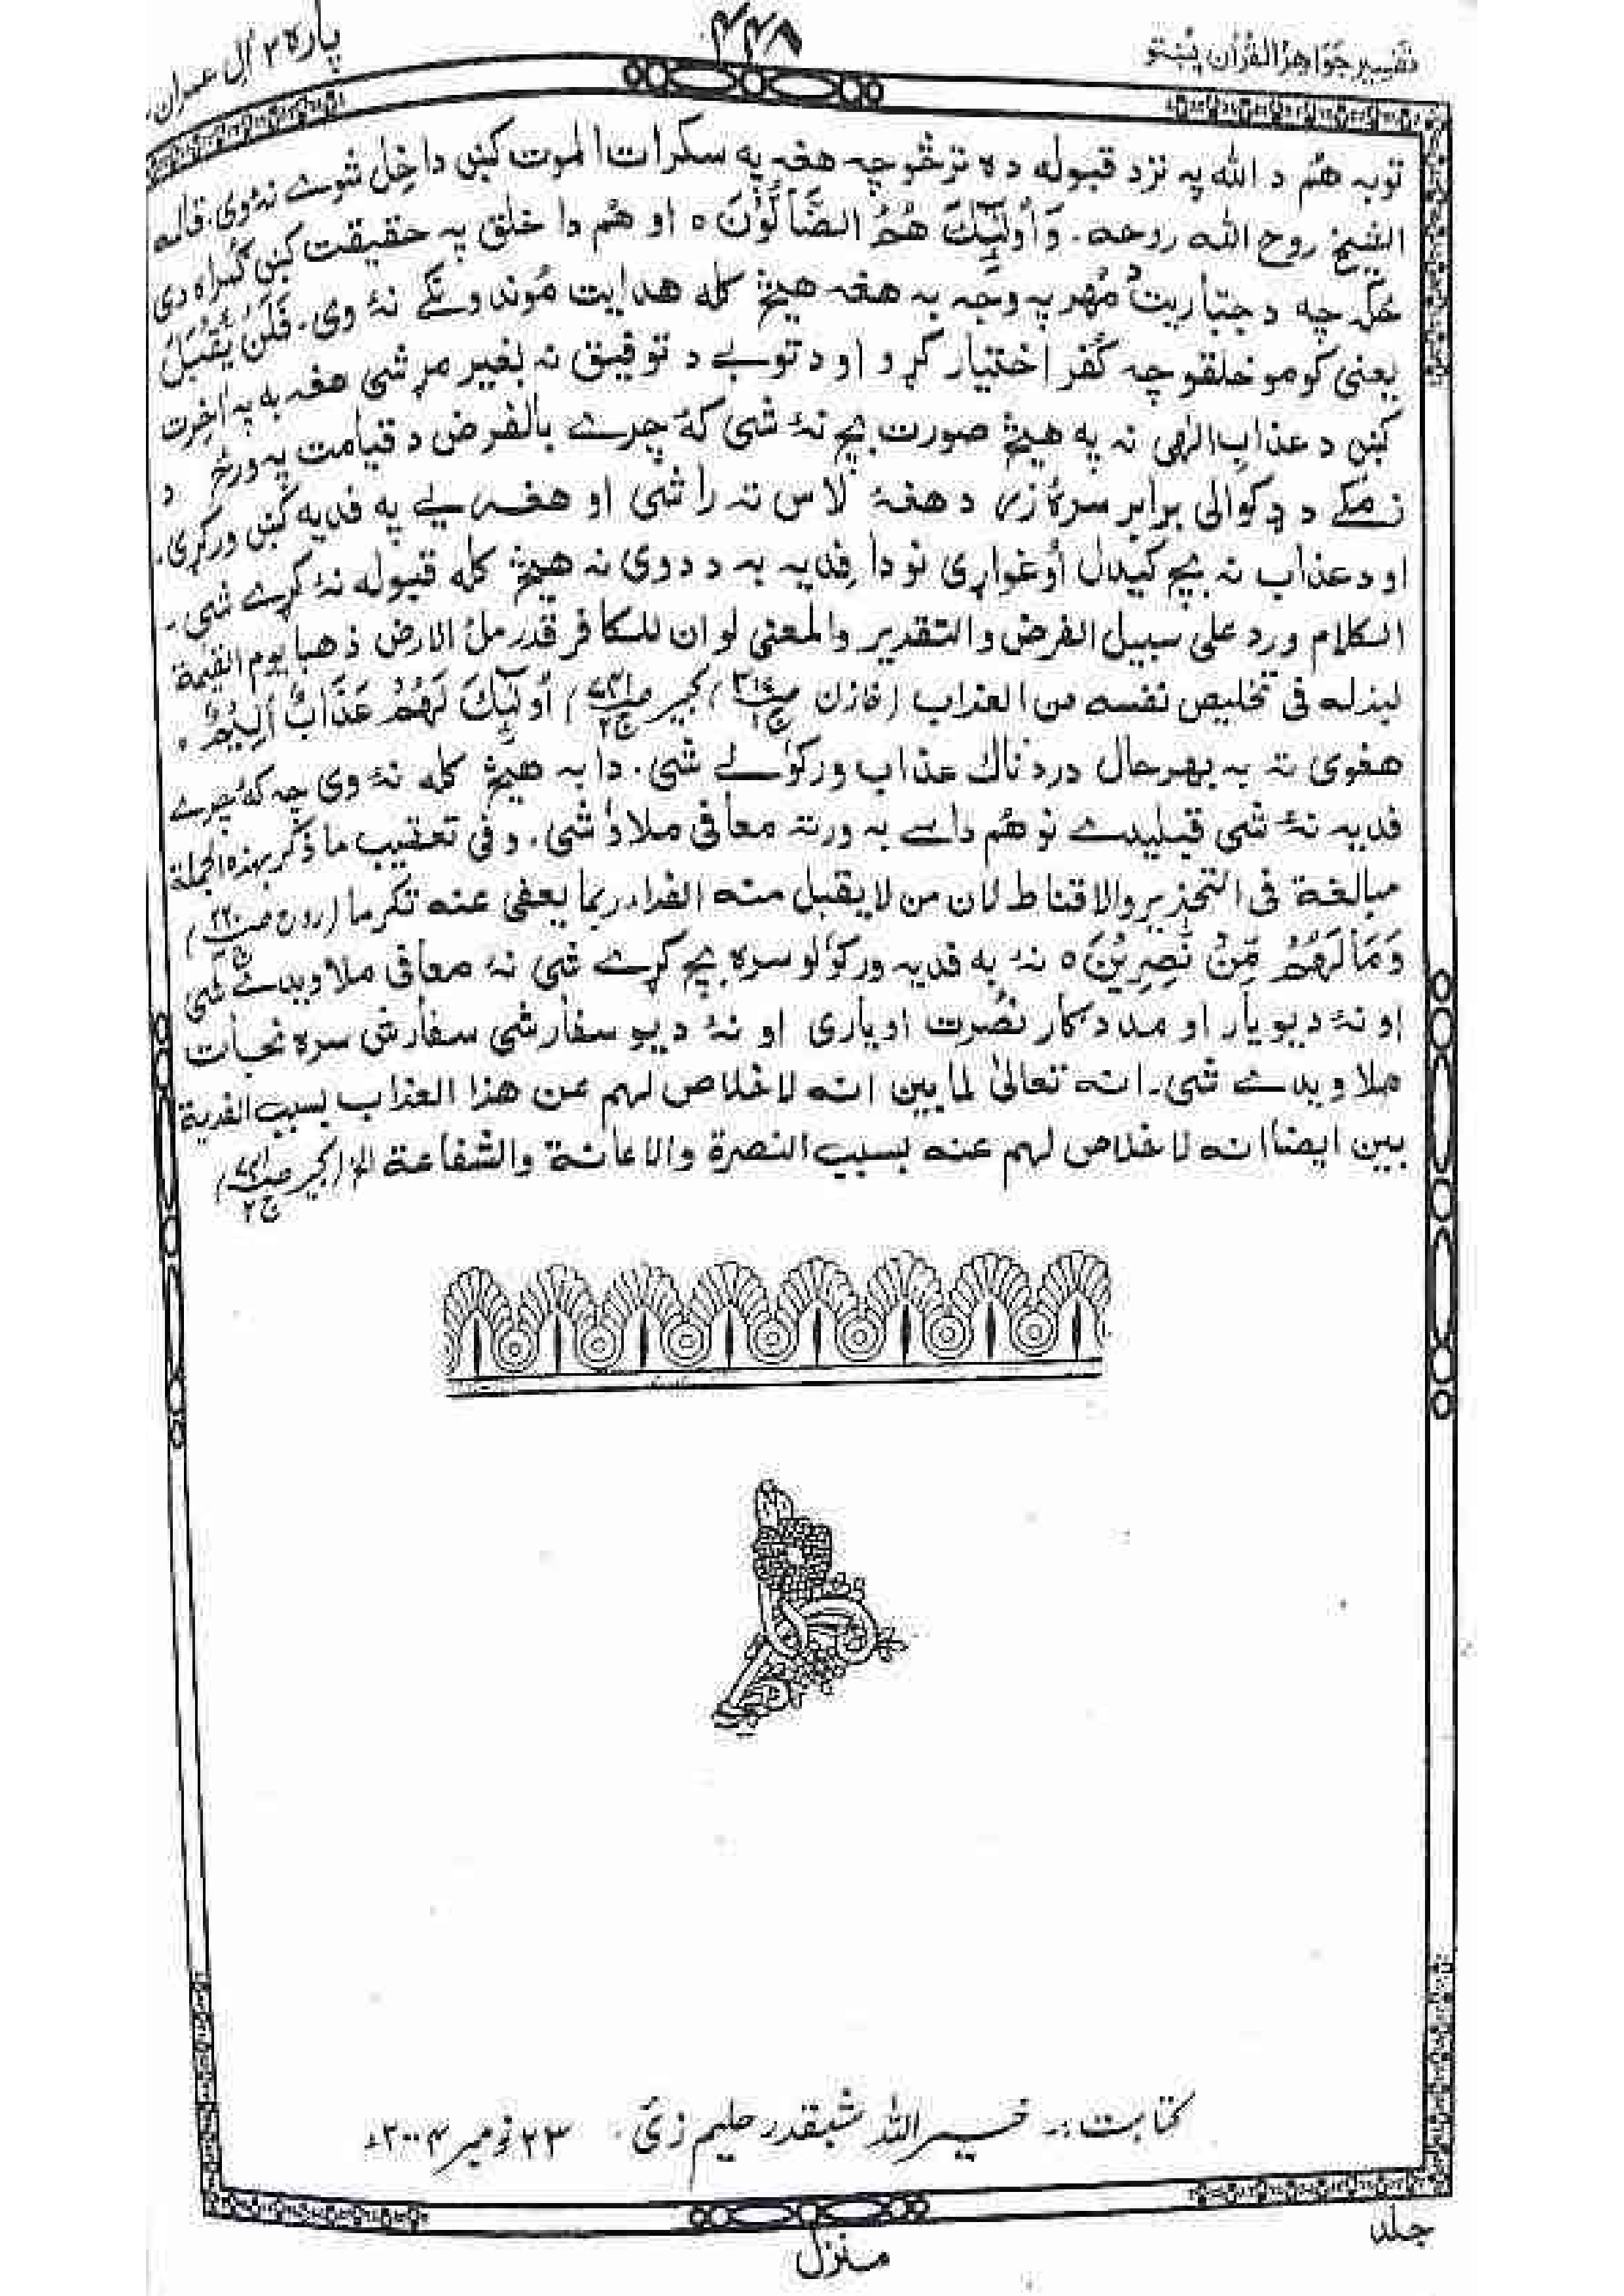 تفسير جواهر القرآن پښتو
۴۴۸
پاره ۳ اٰل عمران
توبه هُم د الله په نزد قبوله ده ترڅو چه هغه په سکرات الموت کښ داخِل شوے نۀ وی. قاله
الشيخ روح الله روحه. وَاُولٰٓئِكَ هُمُ الضَّآلُّوْنَ ○ او هُم دا خلق په حقيقت کښ ګمراه دی
ځکه چه د جباريت مُهر په وجه به هغه هيڅ کله هدايت مُوندونکے نۀ وی. فَلَنْ يُّقْبَلَ
يعنی کومو خلقو چه کُفر اختيار کړو او د توبے د توفيق نه بغير مړ شی هغه به په اٰخِرت
کښ د عذابِ الٰهی نه په هيڅ صورت بچ نۀ شی کۀ چرے بالفرض د قيامت په ورځ د
زمکے د ډکوالی برابر سرۀ زر د هغۀ لاس ته راشی او هغه ئے په فديه کښ ورکړی.
او د عذاب نه بچ کيدل اُوغواړی نو دا فِديه به د دوی نه هيڅ کله قبوله نۀ کړے شی.
الكلام ورد على سبيل الفرض والتقدير والمعنى لو ان للكافر قدر ملئ الارض ذهبا يوم القيٰمة
لبذله فی تخليص نفسه من العذاب (خازن ج۱ / كبير ج۲) اُولٰٓئِكَ لَهُمْ عَذَابٌ اَلِيْمٌ ○
هغوی ته به بهرحال دردناک عذاب ورکولے شی. دا به هيڅ کله نۀ وی چه کۀ چرے
فديه نۀ شی قبليدے نو هُم داسے به ورته معافی ملاؤ شی. وفی تعقيب ما ذکر بهذه الجملة
مبالغة فی التحذير والاقناط لان من لا يقبل منه الفداء ربما يعفى عنه تكرما (روح ج)
وَمَا لَهُمْ مِّنْ نّٰصِرِيْنَ ○ نۀ به فديه ورکولو سره بچ کړے شی نۀ معافی ملاويدے شی
او نۀ د يو يار او مددګار نُصرت او ياری او نۀ د يو سفارشی سفارش سره نجات
ملاويدے شی. انه تعالىٰ لما بين انه لا خلاص لهم عن هذا العذاب بسبب الفدية
بين ايضا انه لا خلاص لهم عنه بسبب النصرة والاعانة والشفاعة الخ (كبير ج۲)
کتابت:۔ خيرالله شبقدر حليم زئ. ۲۳ نومبر ۲۰۰۴ء
جلد
منزل